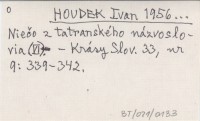 o
HOUDEK Ivan 1956...
Niečo z tatranského názvoslo-
via (VI). - Krásy Slov. 33, nr
9: 339-342.
BT/079/0133